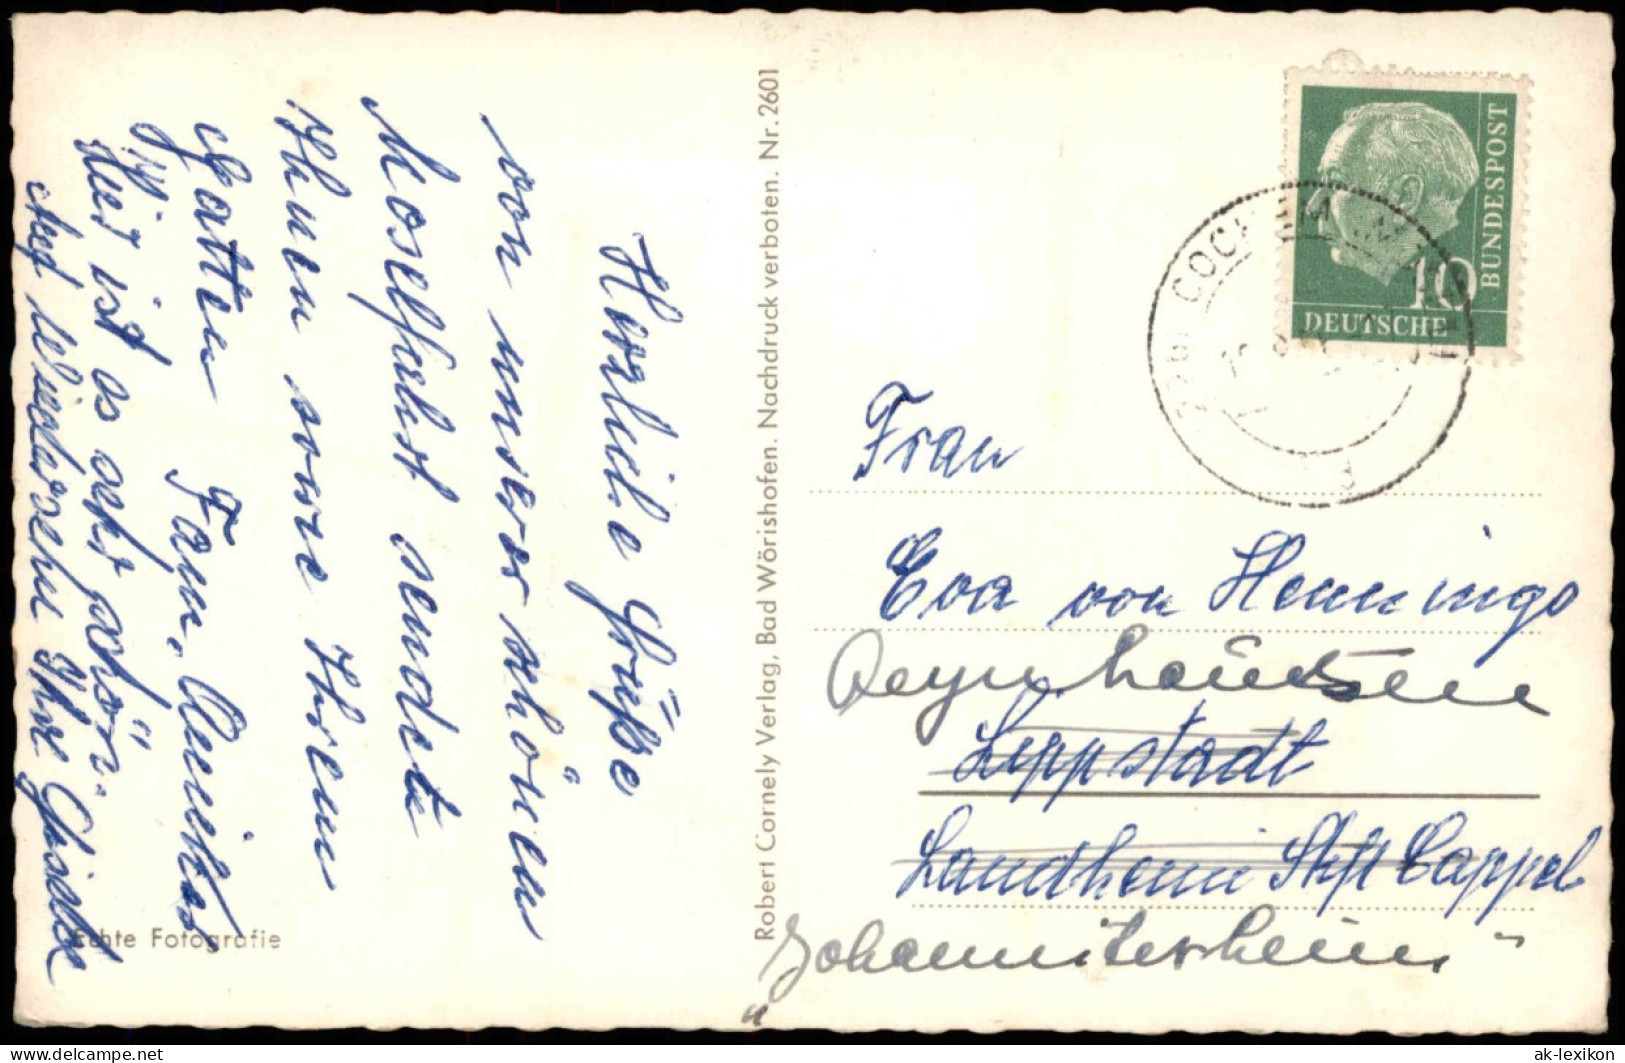 Herzliche Grüße
von unserer schönen
Moselfahrt sendet
Ihnen sowie Ihrem
Gatten Fam.
Hier ist es sehr schön.
Auf Wiedersehn Ihre
Echte Fotografie
Robert Cornely Verlag, Bad Wörishofen. Nachdruck verboten. Nr. 2601
DEUTSCHE
BUNDESPOST
10
COCHEM
d
Frau
Eva von Hennings
Oeynhausen
Lippstadt
Landheim Stift Cappel
"Johanniterheim"
delcampe.net
ak-lexikon